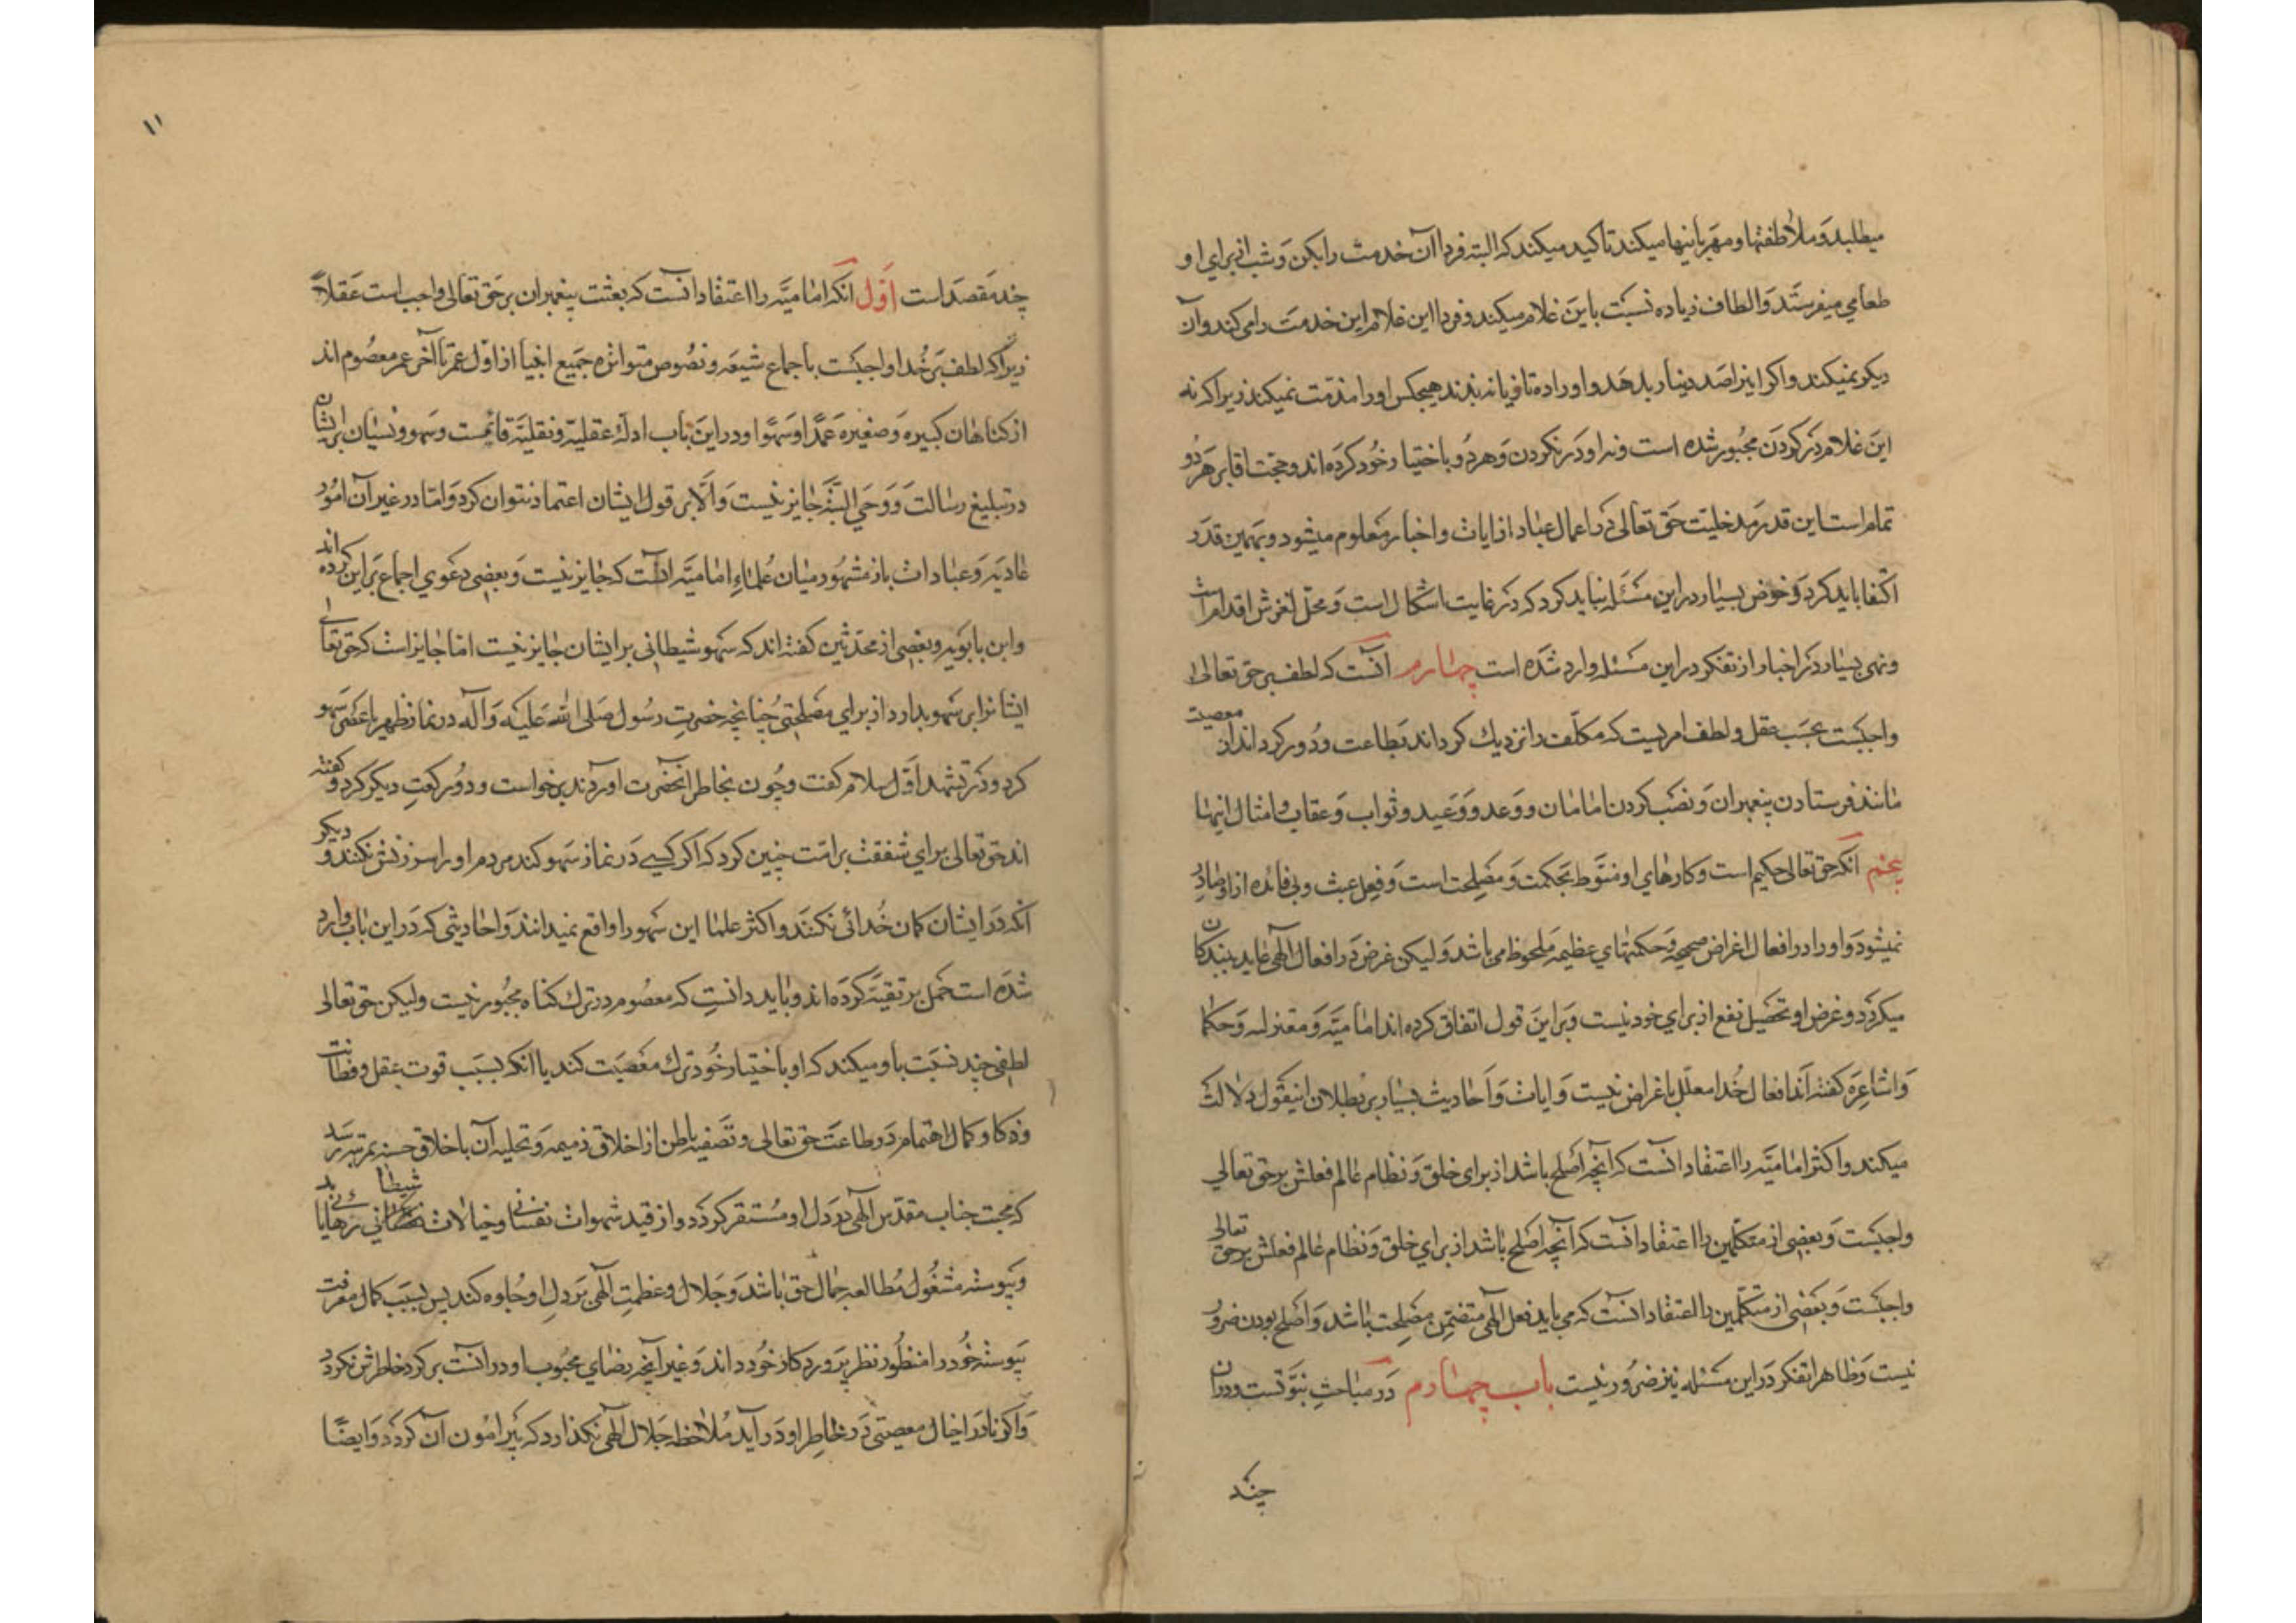 میطلبد و ملاطفتها و مهربانیها میکند تاکید میکند که البته فردا آن خدمت را بکن و شب از برای او
طعامی میفرستد و الطاف زیاده نسبت باین غلام میکند و فردا این غلام این خدمت را می کند و آن
دیکر نمیکند و اکر اینرا صد دینار بدهد و او را ده تازیانه بزند هیچکس او را مذمت نمیکند زیرا که نه
این غلام در کردن مجبور شده است و نه او در نکردن و هر دو باختیار خود کرده اند و حجت اقا بر هر دو
تمام است این قدر مدخلیت حق تعالی در اعمال عباد از ایات و اخبار معلوم میشود و بهمین قدر
اکتفا باید کرد و خوض بسیار در این مسئله نباید کرد که در غایت اشکال است و محل لغزش اقدام است
و نهی بسیار در اخبار از تفکر در این مسئله وارد شده است چهارم انست که لطف بر حق تعالی
واجبست بحسب عقل و لطف امریست که مکلف را نزدیك کرداند بطاعت و دور کرداند از معصیت
مانند فرستادن پیغمبران و نصب کردن امامان و وعد و وعید و ثواب و عقاب و امثال اینها
پنجم آنکه حق تعالی حکیم است و کارهای او منوط بحکمت و مصلحت است و فعل عبث و بی فائده از او صادر
نمیشود و او را در افعال اغراض صحیحه و حکمتهای عظیمه ملحوظ می باشد و لیکن غرض در افعال الهی عاید ببندکان
میکردد و غرض او تحصیل نفع از برای خود نیست و بر این قول اتفاق کرده اند امامیّه و معتزله و حکما
و اشاعره کفته اند افعال خدا معلّل باغراض نیست و ایات و احادیث بسیار بر بطلان اینقول دلالت
میکند و اکثر امامیّه را اعتقاد انست که آنچه اصلح باشد از برای خلق و نظام عالم فعلش بر حق تعالی
واجبست و بعضی از متکلمین را اعتقاد انست که آنچه اصلح باشد از برای خلق و نظام عالم فعلش بر حق تعالی
واجبست و بعضی از متکلّمین را اعتقاد انست که می باید فعل الهی متضمن مصلحت باشد و اصلح بودن ضرور
نیست و ظاهرا تفکر در این مسئله نیز ضرور نیست باب چهارم در مباحث نبوّتست و در آن
چند
۱۱
چند مقصد است اوّل آنکه امامیّه را اعتقاد انست که بعثت پیغمبران بر حق تعالی واجب است عقلاً
زیرا که لطف بر خدا واجبست باجماع شیعه و نصوص متواتره جمیع انبیا از اوّل عمر تا آخر عمر معصوم اند
از کناهان کبیره و صغیره عمداً و سهواً و در این باب ادلهٔ عقلیّه و نقلیّه قائمست و سهو و نسیان بر ایشان
در تبلیغ رسالت و وحی البتّه جایز نیست و الّا بر قول ایشان اعتماد نتوان کرد و امّا در غیر آن امور
عادیّه و عبادات باز مشهور میان علماء امامیّه آنست که جایز نیست و بعضی دعوی اجماع بر این کرده اند
و ابن بابویه و بعضی از محدّثین کفته اند که سهو شیطانی بر ایشان جایز نیست امّا جایز است که حق تعالی
ایشانرا بر سهو بدارد از برای مصلحتی چنانچه حضرت رسول صلی الله علیه و آله در نماز ظهر یا عصر سهو
کرد و در تشهد اوّل سلام کفت و چون بخاطر انحضرت اوردند برخواست و دو رکعت دیکر کرد و کفته
اند حق تعالی برای شفقت بر امّت چنین کرد که اکر کسی در نماز سهو کند مردم او را سرزنش نکنند و دیکر
آنکه در ایشان کمان خدائی نکنند و اکثر علما این سهو را واقع نمیدانند و احادیثی که در این باب وارد
شده است حمل بر تقیّه کرده اند و باید دانست که معصوم در ترك کناه مجبور نیست ولیکن حق تعالی
لطفی چند نسبت باو میکند که او باختیار خود ترك معصیت کند با انکه بسبب قوت عقل و فطانت
و ذکا و کمال اهتمام در طاعت حق تعالی و تصفیه باطن از اخلاق ذمیمه و تحلیه آن باخلاق حسنه بمرتبه رسد
که محبت جناب مقدّس الهی در دل او مستقر کردد و از قید شهوات نفسانی و خیالات شیطانی رهائی یابد
و پیوسته مشغول مطالعه جمال حق باشد و جلال و عظمت الهی بر دل او جلوه کند پس بسبب کمال معرفت
پیوسته خود را منظور نظر پروردکار خود داند و غیر آنچه رضای محبوب او در آنست بر کرد خاطرش نکردد
و اکر نادرا خیال معصیتی در خاطر او در آید ملاحظه جلال الهی نکذارد که پیرامون آن کردد و ایضًا